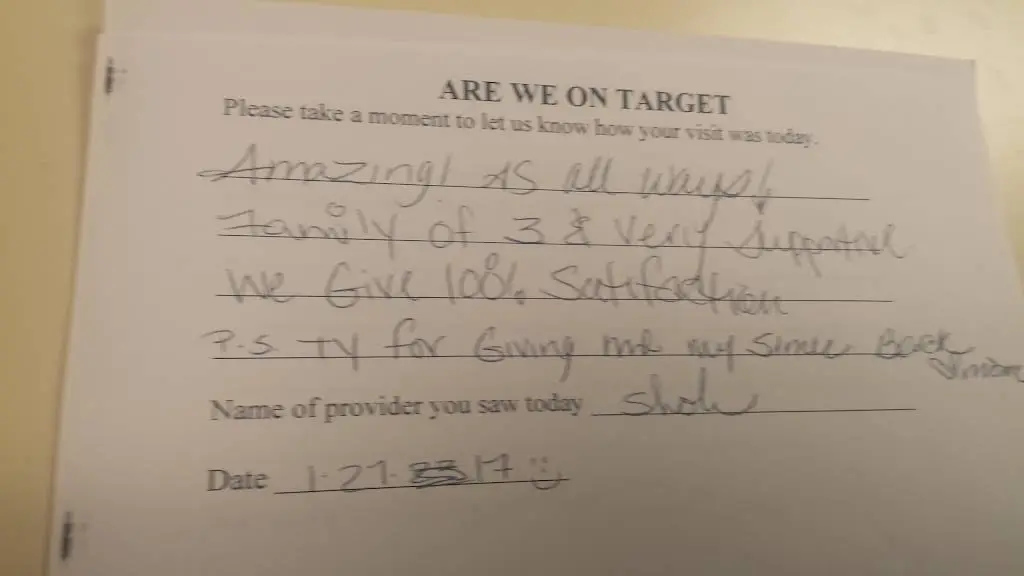 ARE WE ON TARGET
Please take a moment to let us know how your visit was today.
Amazing! AS all ways!
Family of 3 & Very
We Give 100%
P.S TY for Giving me my Back
Name of provider you saw today
Date 1.27. 17